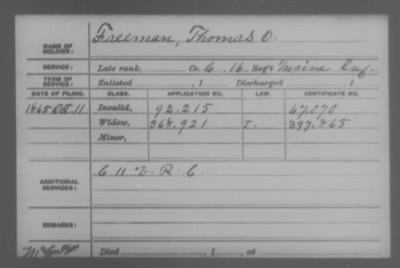 NAME OF SOLDIER: Freeman, Thomas O.
SERVICE: Late rank, Co. G, 16 Reg't Maine Inf.
TERM OF SERVICE: Enlisted , 1 Discharged , 1
DATE OF FILING. CLASS. APPLICATION NO. LAW. CERTIFICATE NO.
1865 Oct. 11 Invalid, 92.215 67.070
Widow, 568.921 397.865
Minor,
ADDITIONAL SERVICES: C 11 V. R. C.
REMARKS:
Died , 1 , at